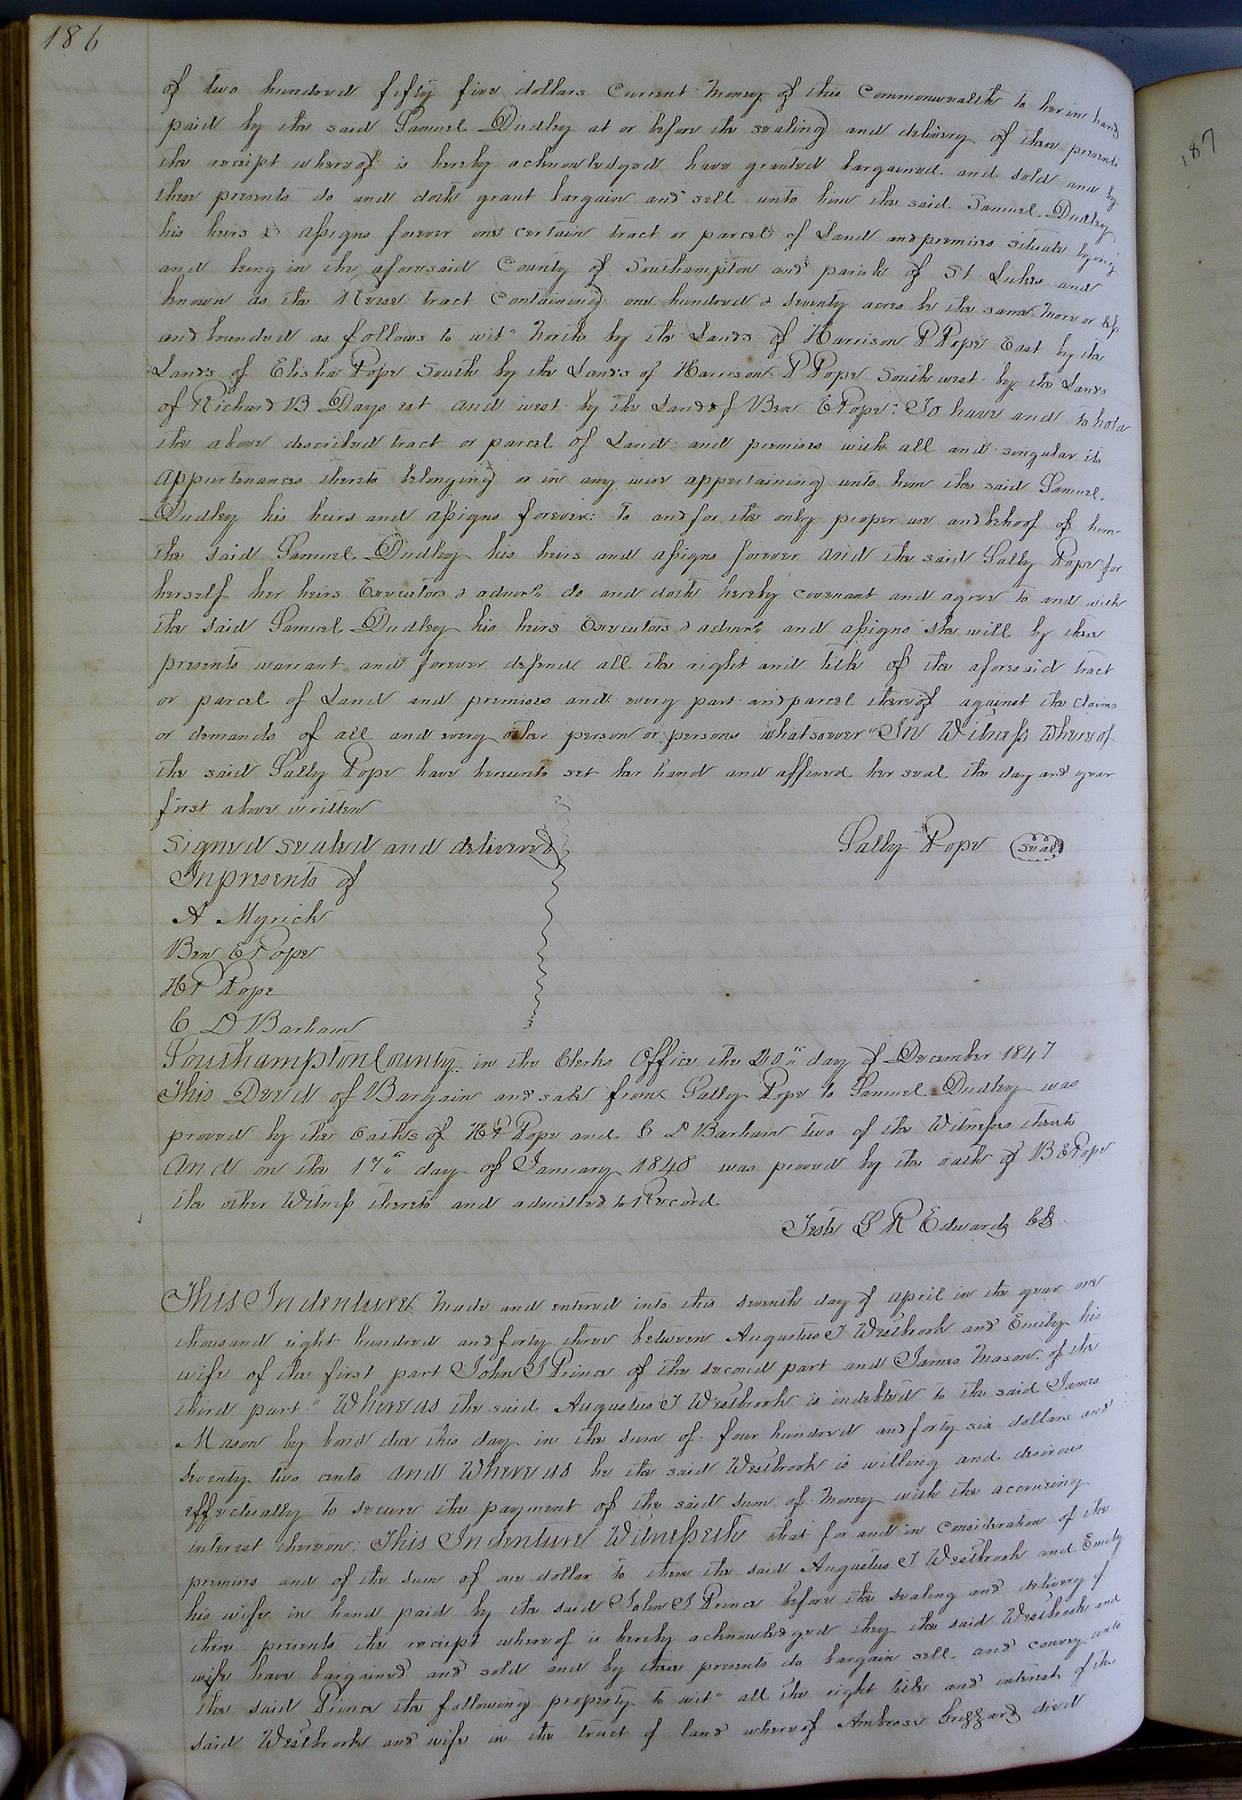 186
of two hundred fifty five dollars Current money of this Commonwealth to her in hand
paid by the said Samuel Dudley at or before the sealing and delivery of these presents
the receipt whereof is hereby acknowledged have granted bargained and sold and by
these presents do and doth grant bargain and sell unto him the said Samuel Dudley
his heirs & assigns forever one certain tract or parcel of Land and premises situate lying
and being in the aforesaid County of Southampton and parish of St Lukes and
known as the tract Containing one hundred & seventy acres be the same more or less
and bounded as follows to wit" North by the Lands of Harrison P Pope East by the
Lands of Elisha Pope South by the Lands of Harrison P Pope South west by the Lands
of Richard B Days est and west by the Land of Ben E Pope: To have and to hold
the above described tract or parcel of Land and premises with all and singular its
appurtenances thereto belonging or in any wise appertaining unto him the said Samuel
Dudley his heirs and assigns forever: to and for the only proper use and behoof of him
the said Samuel Dudley his heirs and assigns forever and the said Sally Pope for
herself her heirs Executors & admrs do and doth hereby covenant and agree to and with
the said Samuel Dudley his heirs Executors & admrs and assigns she will by these
presents warrant and forever defend all the right and title of the aforesaid tract
or parcel of Land and premises and every part and parcel thereof against the claims
or demands of all and every other person or persons whatsoever" In Witness whereof
the said Sally Pope have hereunto set her hand and affixed her seal the day and year
first above written
Signed sealed and delivered
Sally Pope seal
In presents of
A Myrick
Ben E Pope
H P Pope
C D Barham
Southampton County in the Clerks Office the 20th day of December 1847
This Deed of Bargain and sale from Sally Pope to Samuel Dudley was
proved by the oaths of H P Pope and C D Barham two of the Witnesses thereto
and on the 17th day of January 1848 was proved by the oath of B E Pope
the other Witness thereto and admitted to Record
Teste L R Edwards Clk
This Indenture made and entered into this seventh day of april in the year one
thousand eight hundred and forty three between Augustus J Westbrook and Emily his
wife of the first part John J Prince of the second part and James Mason of the
third part" Whereas the said Augustus J Westbrook is indebted to the said James
Mason by bond due this day in the sum of four hundred and forty six dollars and
seventy two cents and Whereas he the said Westbrook is willing and desirous
effectually to secure the payment of the said sum of money with the accruing
interest thereon: This Indenture Witnesseth that for and in Consideration of the
premises and of the sum of one dollar to them the said Augustus J Westbrook and Emily
his wife in hand paid by the said John J Prince before the sealing and delivery of
these presents the receipt whereof is hereby acknowledged they the said Westbrook and
wife have bargained and sold and by these presents do bargain sell and convey unto
the said Prince the following property to wit" all the right title and interest of the
said Westbrook and wife in the tract of land whereof Ambrose Grizzard died
187